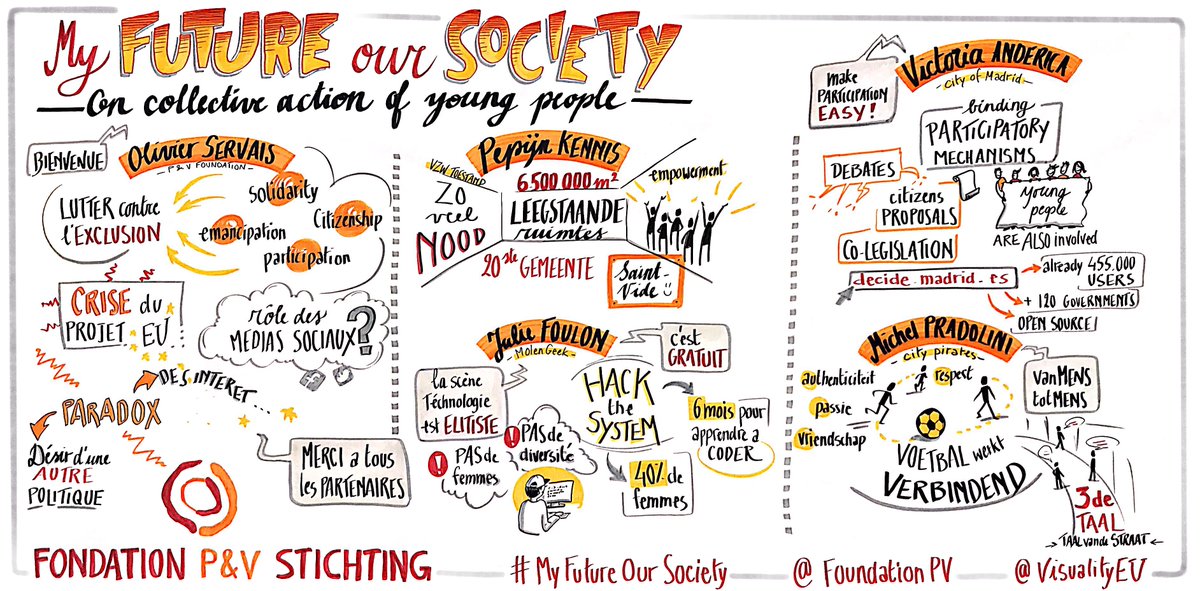 My FUTURE our SOCIETY
On collective action of young people
BIENVENUE
Olivier SERVAIS
P&V FOUNDATION
LUTTER contre
l'EXCLUSION
solidarity
Citizenship
emancipation
participation
CRISE du
PROJET EU
rôle des
MEDIAS SOCIAUX?
DESINTERET...
PARADOX
Désir d'une
AUTRE
POLITIQUE
MERCI a tous
les PARTENAIRES
Pepijn KENNIS
VZW TOESTAND
ZO
veel
NOOD
6500 000 m²
LEEGSTAANDE
ruimtes
20ste GEMEENTE
empowerment
Saint-
Vide
Julie FOULON
MolenGeek
c'est
GRATUIT
la scène
Téchnologie
est ELITISTE
HACK
the
SYSTEM
! PAS de
diversité
! PAS de
femmes
6 mois pour
apprendre a
CODER
40% de
femmes
make
PARTICIPATION
EASY!
Victoria ANDERICA
city of Madrid
binding
PARTICIPATORY
MECHANISMS
DEBATES
citizens
PROPOSALS
CO-LEGISLATION
young
people
ARE ALSO involved
decide.madrid.es
already 455.000
USERS
+ 120 GOVERNMENTS
OPEN SOURCE!
Michel PRADOLINI
city pirates
authenticiteit
passie
vriendschap
respect
VOETBAL werkt
VERBINDEND
van MENS
tot MENS
3de
TAAL
TAAL van de STRAAT
FONDATION P&V STICHTING
# My Future Our Society
@ Foundation PV
@ VISUALITYEU